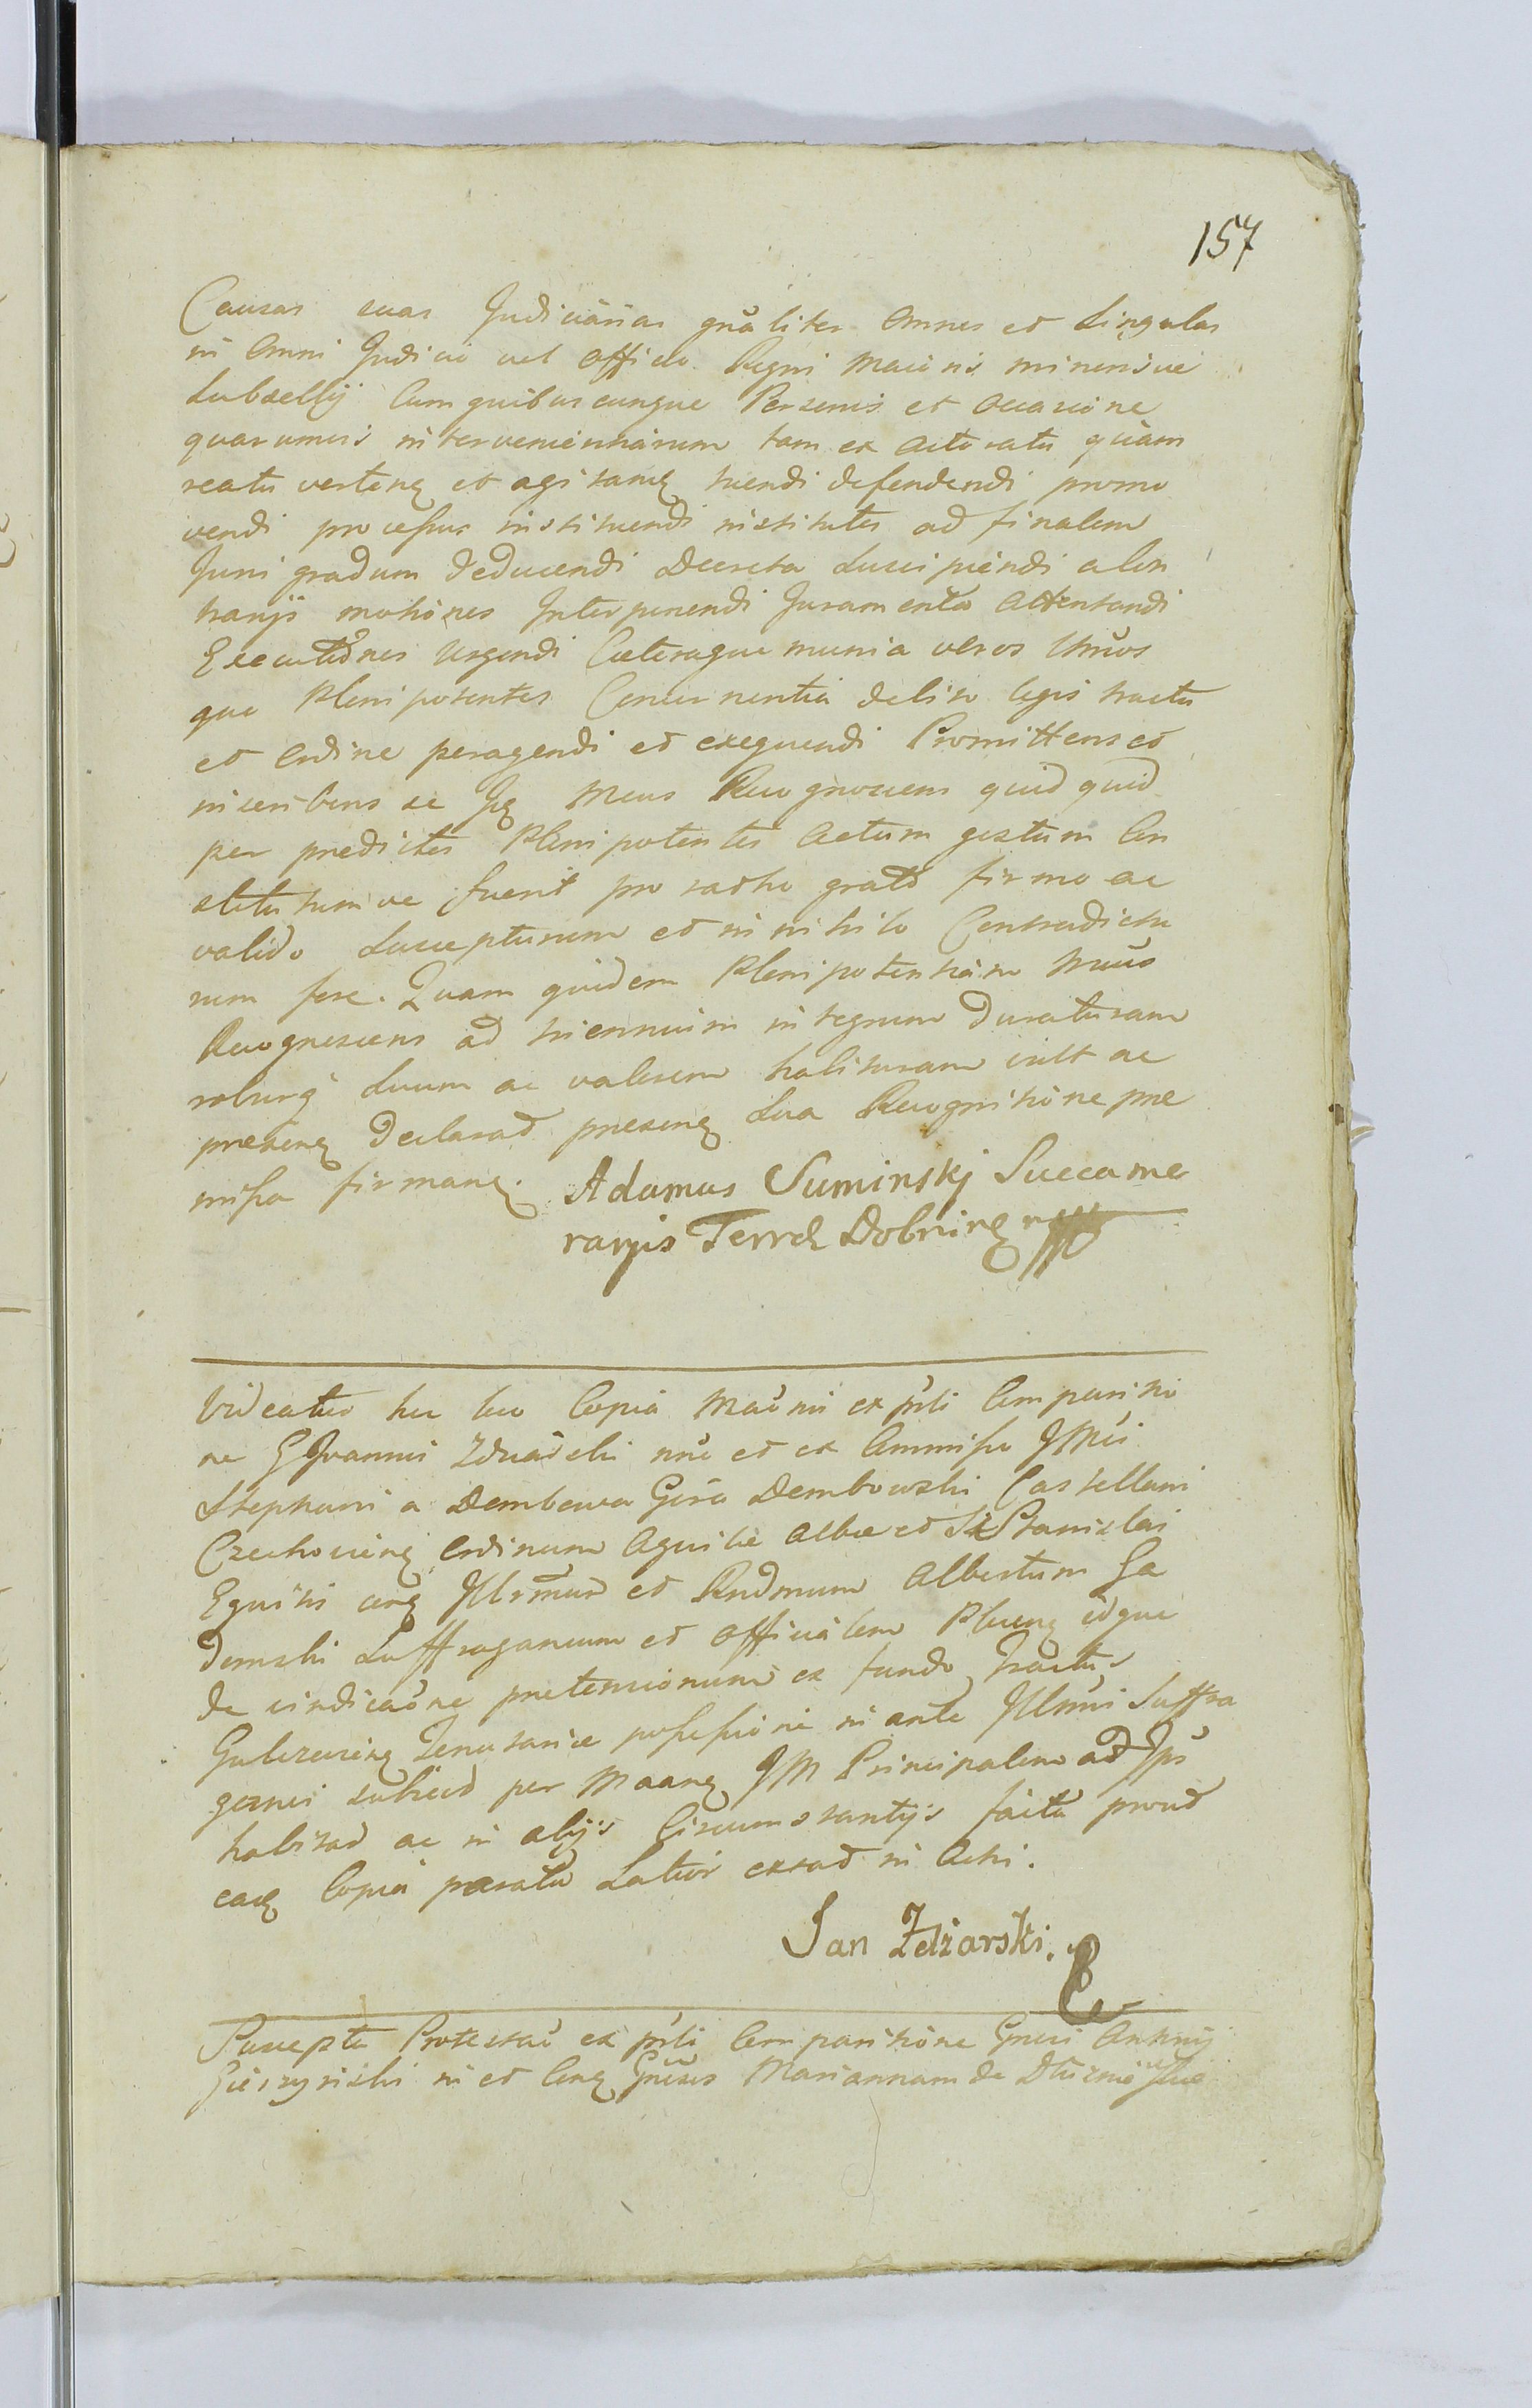 157
Causas suas Judiciarias gnãliter Omnes et Singulas
in Omni Judicio vel Officio Regni Maioris minorisve
Subsellij Cum quibuscunque Personis et Occasione
quarumvis intervenientiarum tam ex Actoratu quam
reatu verteng et agitang tuendi defendendi promo
vendi processus instituendi institutos ad finalem
Juris gradum deducendi Decreta Suscipiendi ab ex
tranijs motiones Interponendi Juramenta Attentandi
Executiones Urgendi Caeteraque munia veros
que Plenipotentes Concernentia debito legis tractu
et Ordine peragendi et exequendi Promittens et
inscribens se Mcus Recognoscens quid quid
per predictos Plenipotentes Actum gestum Con
stitutumve fuerit pro ratho grato firmo ac
valido Suscepturum et in nihilo Contradictu
rum fore. Quam quidem Plenipotentiam
Recognoscens ad triennium integrum duraturam
roburq Suum ac valorem habituram vult ac
preseng declarat preseng Sua Recognitione pre
missa firmang.
Adamus Suminskj Succame
rarijs Terræ Dobrineng mpp
Videatur hic loco Copia ex pñli Comparitio
ne G Joannis nõe et ex Commisso
Stephani a Dembowa Gora Dembowski Castellani
Czechovieng Ordinum Aquilæ Albæ et St Stanislai
Equitis Illrmum et Rndmum Albertum Ga
domski Suffraganeum et Officialem Ploceng idque
de vindicaõne pretensionum ex fundo
possessione in ante Illmi Suffra
ganei per Principalem ad
habitas ac in alijs Circumstantijs facta prout
eaq Copia parata Latior extat in Acti.
Jan Zdziarski.
Suscepta Protestaõ ex pñli Comparitione Gnsi Antonij
in et Cong Mariannam de